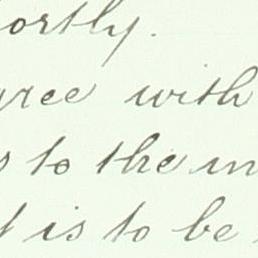 ortly.
gree with
s to the in
t is to be